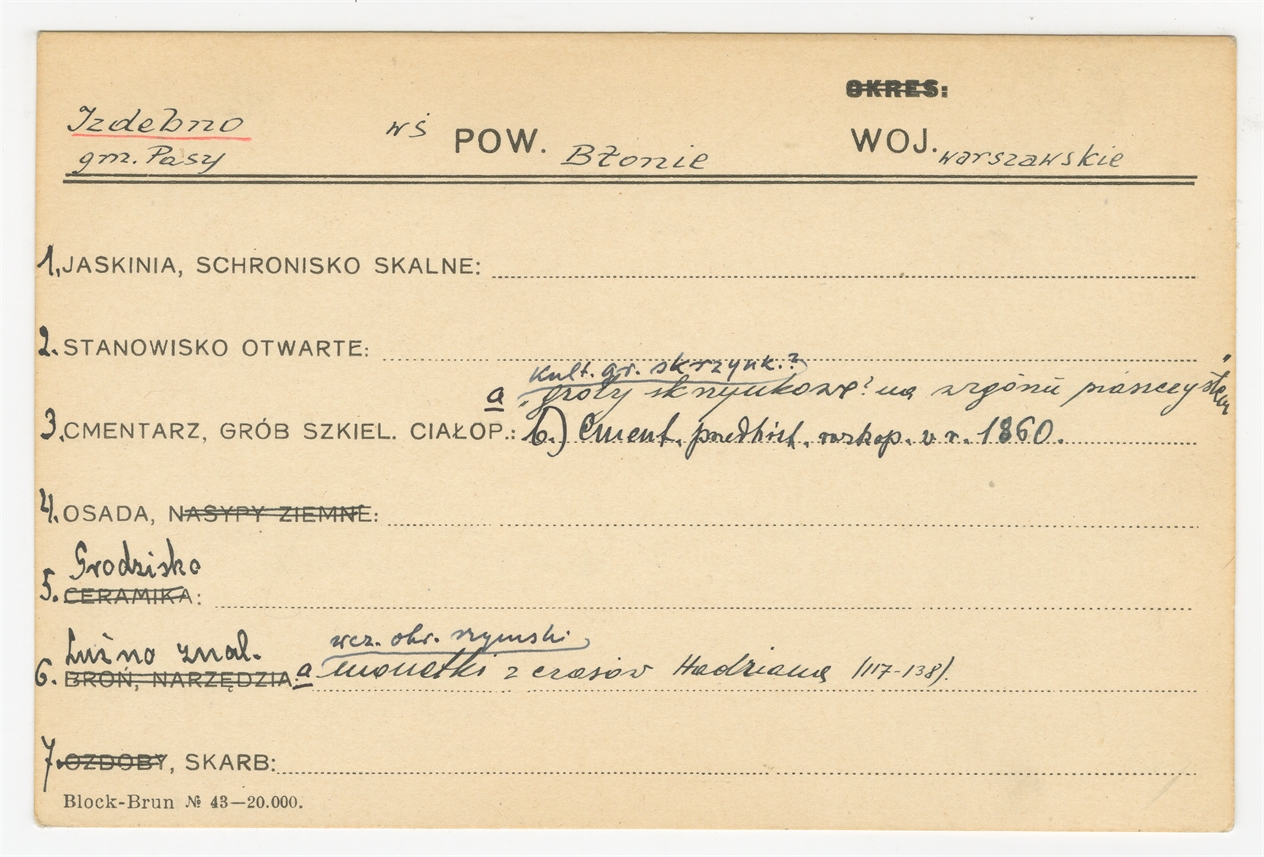 OKRES:
Izdebno wś POW. Błonie WOJ. warszawskie
gm. Pasy
1. JASKINIA, SCHRONISKO SKALNE:
2. STANOWISKO OTWARTE:
kult. gr. skrzynk.?
a „groby skrzynkowe? na wzgórzu piasczystem"
3. CMENTARZ, GRÓB SZKIEL. CIAŁOP.: b) Cment. przedhist. rozkop. w r. 1860.
4. OSADA, NASYPY ZIEMNE:
Grodzisko
5. CERAMIKA:
Luźno znal. wcz. okr. rzymski
6. BROŃ, NARZĘDZIA a monetki z czasów Hadriana (117-138).
7. OZDOBY, SKARB:
Block-Brun № 43—20.000.